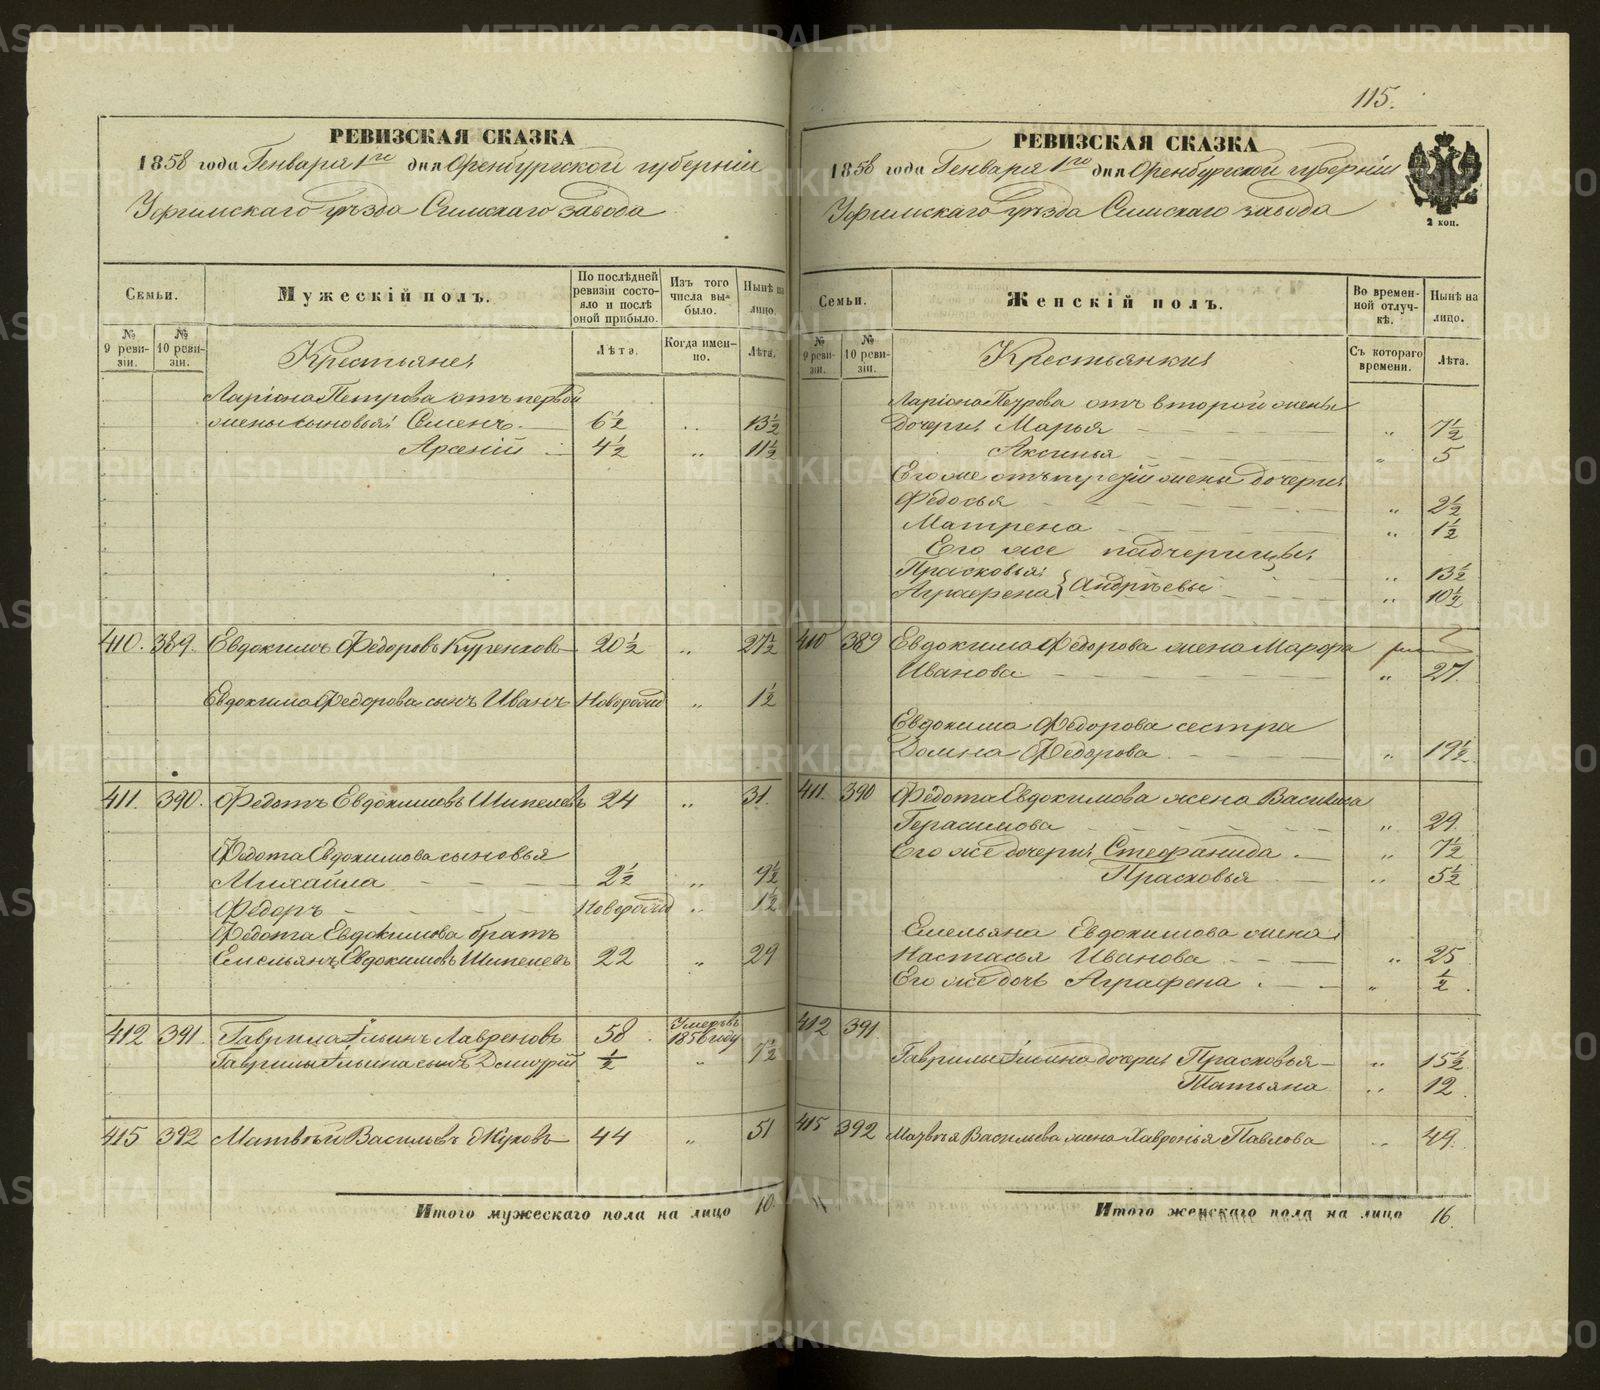 115.
РЕВИЗСКАЯ СКАЗКА
1858 года Генваря 1го дня Оренбургской губерніи
Уфимскаго уѣзда Симскаго завода
Семьи.
Мужескій полъ.
По послѣдней ревизіи состояло и послѣ оной прибыло.
Изъ того числа выбыло.
Нынѣ на лицо.
№ 9 ревизіи.
№ 10 ревизіи.
Крестьяне:
Лѣта.
Когда именно.
Лѣта.
Ларіона Петрова отъ первой
жены сыновья: Семенъ 6½ „ 13½
Арсеній 4½ „ 11½
410. 389. Евдокимъ Ѳедоровъ Куренковъ 20½ „ 27½
Евдокима Ѳедорова сынъ Иванъ Новорожд „ 1½
411. 390. Ѳедотъ Евдокимовъ Шипелевъ 24 „ 31.
Ѳедота Евдокимова сыновья
Михайла 2½ „ 9½
Ѳедоръ Новорожд „ 1½
Ѳедота Евдокимова братъ
Емельянъ Евдокимовъ Шипелевъ 22 „ 29
412 391. Гаврила Ильинъ Лавреновъ 58 Умеръ въ 1856 году
Гаврилы Ильина сынъ Дмитрій ½ „ 7½
415 392 Матвѣй Васильевъ Жуковъ 44 „ 51
Итого мужескаго пола на лицо 10.
РЕВИЗСКАЯ СКАЗКА
1858 года Генваря 1го дня Оренбургской губерніи
Уфимскаго уѣзда Симскаго завода
2 коп.
Семьи.
Женскій полъ.
Во временной отлучкѣ.
Нынѣ на лицо.
№ 9 ревизіи.
№ 10 ревизіи.
Крестьянки:
Съ котораго времени.
Лѣта.
Ларіона Петрова отъ второй жены
дочери: Марья „ 7½
Аксинья „ 5
Его же отъ третій жены дочери:
Ѳедосья „ 2½
Матрена „ 1½
Его же падчерицы:
Прасковья } „ 13½
Аграфена } Андрѣевы „ 10½
410 389 Евдокима Ѳедорова жена Марфа
Иванова „ 27.
Евдокима Ѳедорова сестра
Домна Ѳедорова „ 19½
411. 390 Ѳедота Евдокимова жена Василиса
Герасимова „ 29.
Его же дочери: Стефанида „ 7½
Прасковья „ 5½
Емельяна Евдокимова жена
Настасья Иванова „ 25
Его же дочь Аграфена „ ½
412 391.
Гаврилы Ильина дочери: Прасковья „ 15½
Татьяна „ 12
415 392 Матвѣя Васильева жена Хавронья Павлова „ 49.
Итого женскаго пола на лицо 16.
METRIKI.GASO-URAL.RU